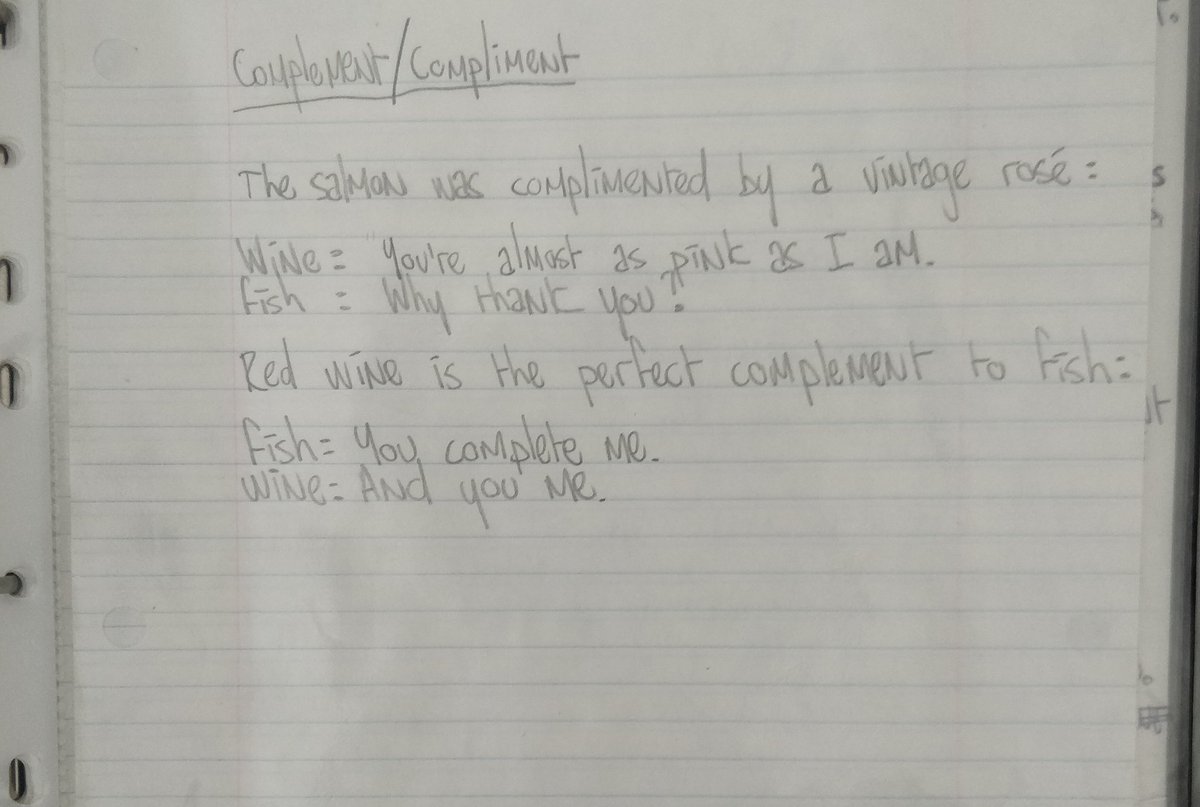 Complement/Compliment
The salmon was complimented by a vintage rosé:
Wine = You're almost as pink as I am.
Fish = Why thank you!
Red wine is the perfect complement to fish:
Fish = You complete me.
Wine = And you me.